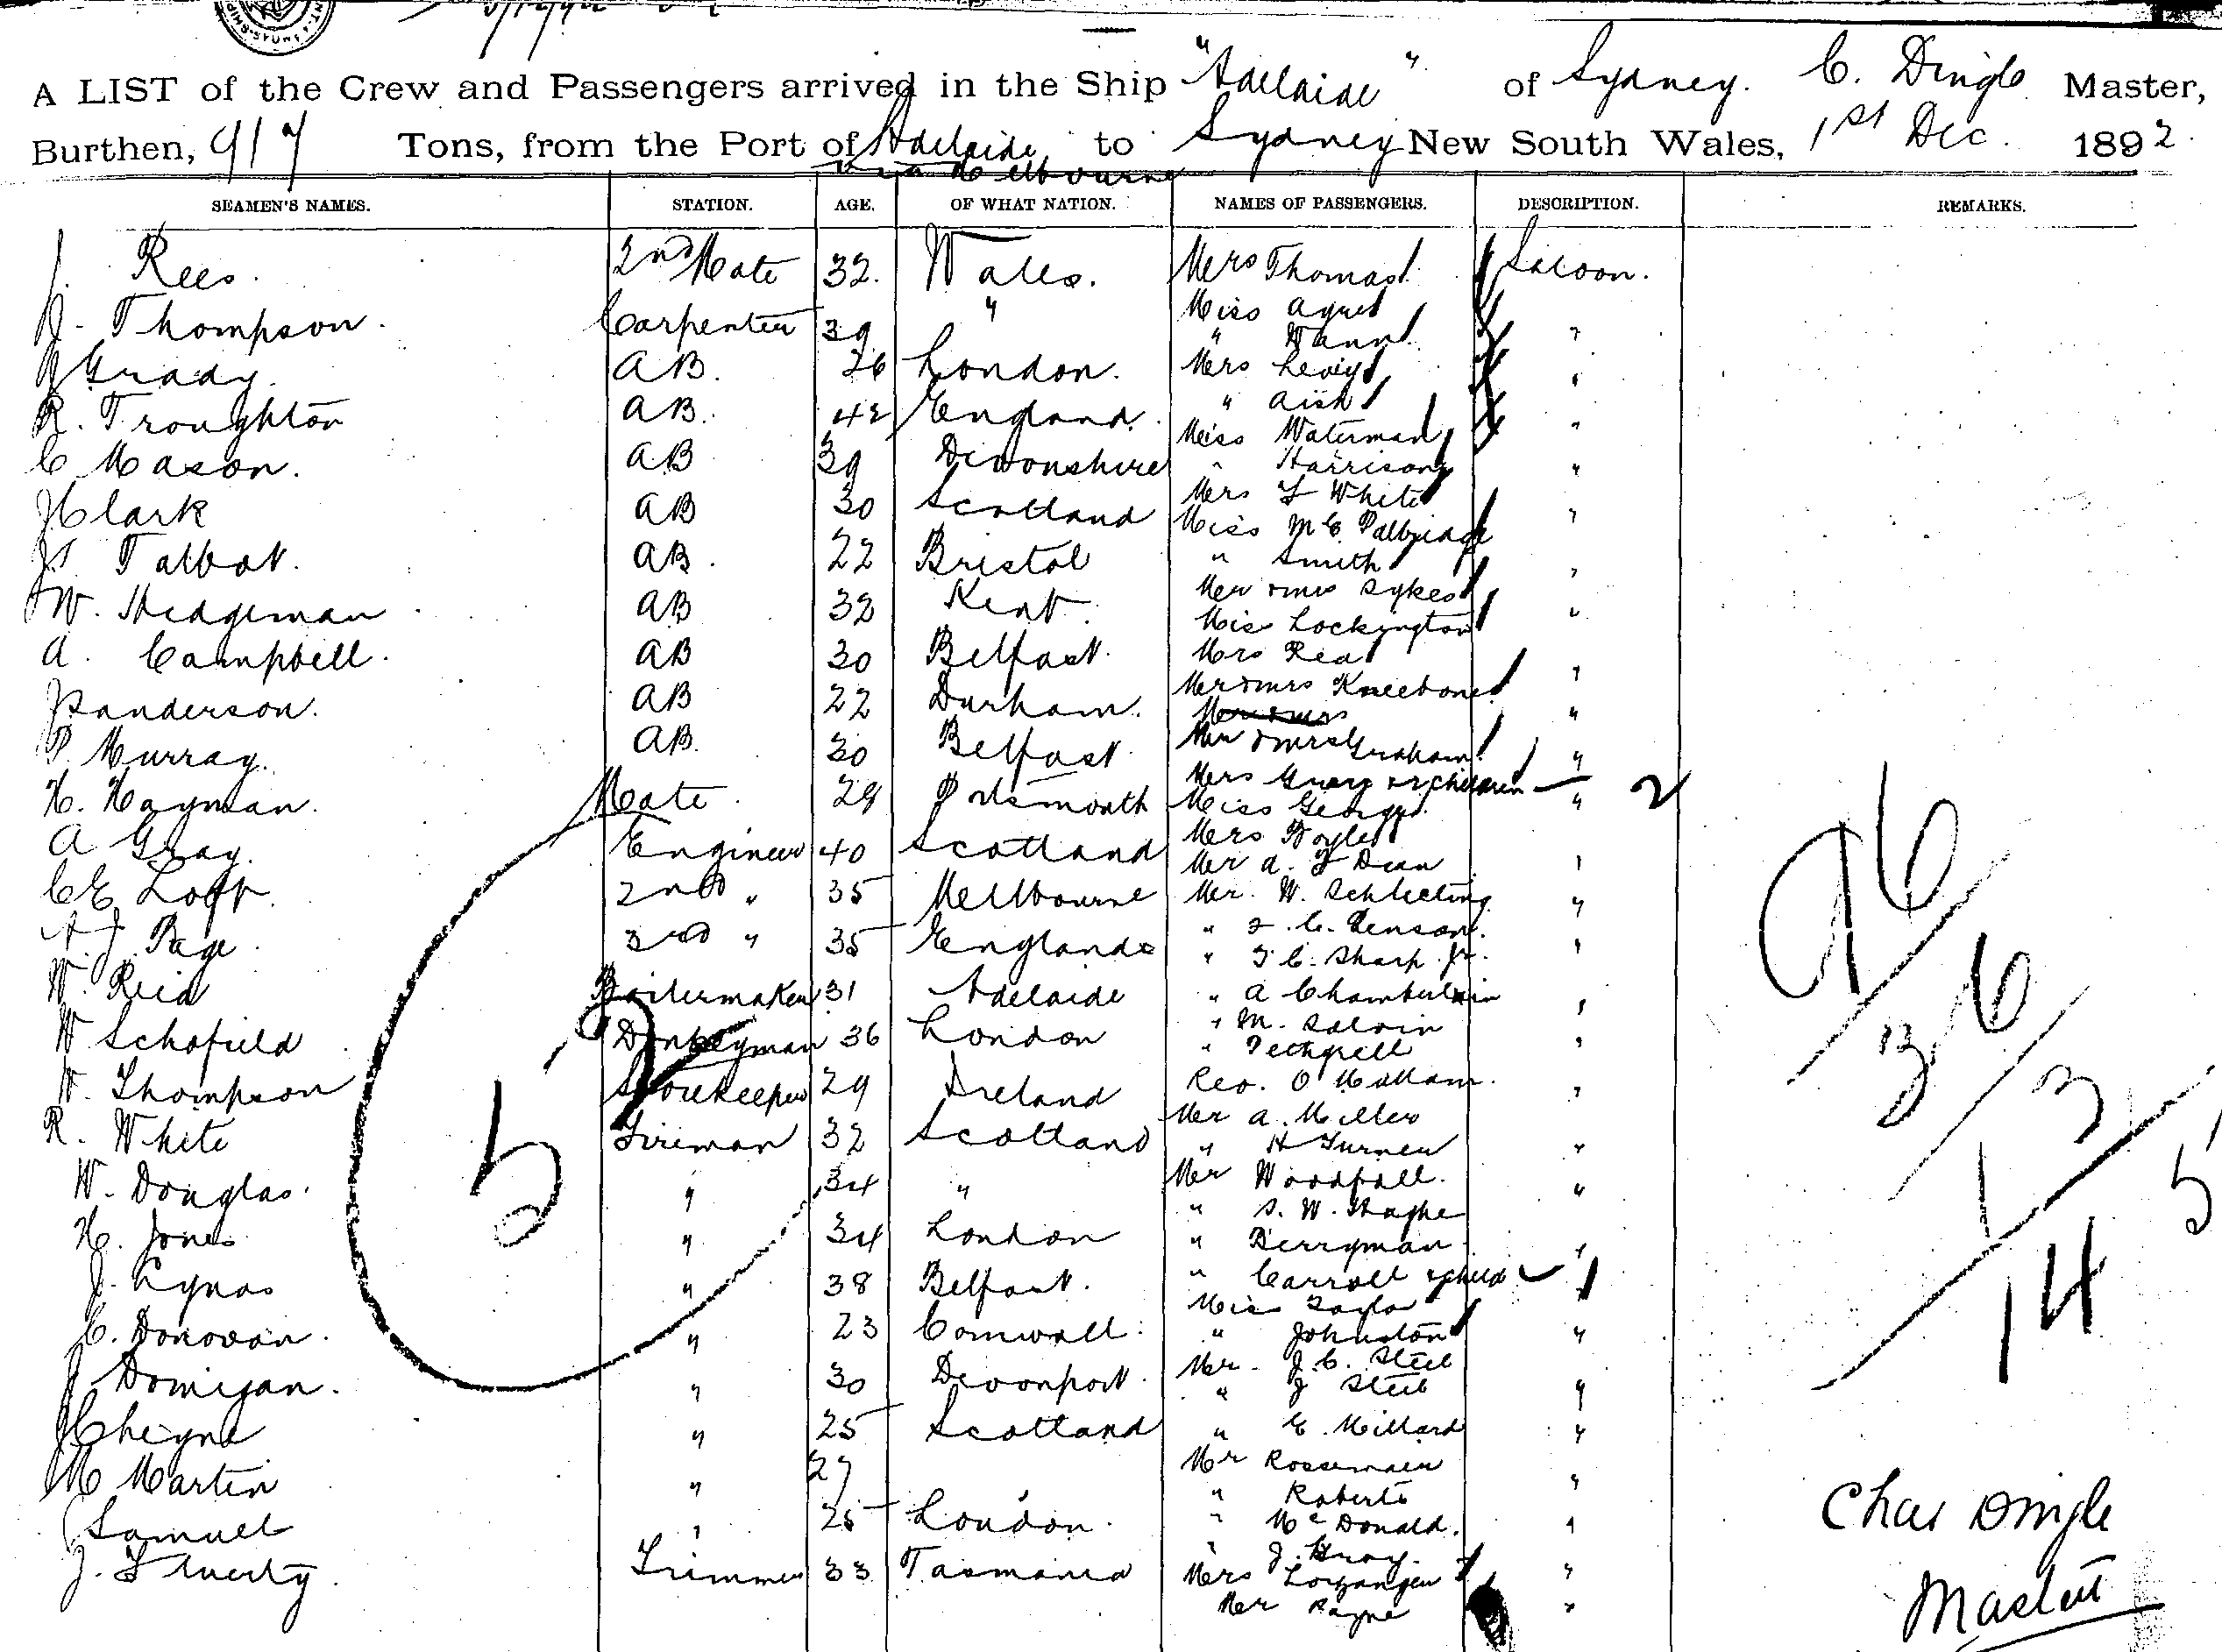 A LIST of the Crew and Passengers arrived in the Ship "Adelaide" of Sydney. C. Dingle Master,
Burthen, 917 Tons, from the Port of Adelaide to Sydney New South Wales, 1st Dec. 1892.
via Melbourne
SEAMEN'S NAMES. STATION. AGE. OF WHAT NATION. NAMES OF PASSENGERS. DESCRIPTION. REMARKS.
J. Rees. 2nd Mate 32. Wales. Mrs Thomas Saloon.
J. Thompson. Carpenter 39 " Miss Ayres
" "
J Grady. AB. 26 London. Mrs Levig "
R. Troughton AB. 42 England. " Aish "
C Mason. AB 39 Devonshire Miss Waterman "
" Harrison "
J Clark AB 30 Scotland Mrs F White
Miss M C "
J T Talbot. AB. 22 Bristol " Smith
W. Hedgeman AB 32 Kent. Mr & Mrs Sykes "
Miss Lockington "
A. Campbell. AB 30 Belfast. Mrs Rea
J Sanderson. AB 22 Durham. Mr & Mrs Kneebone "
Mr & Mrs "
P. Murray. AB. 30 Belfast. Mr & Mrs Graham "
H. Hayman. Mate. 29 Portsmouth Mrs Gray & 2 children — " 2
Miss George
A Gray. Engineer 40 Scotland Mrs Doyle
Mr A. F Dean "
C E Loft. 2nd " 35 Melbourne Mr. W. Schlecting "
Page. 3rd " 35 England " F. C. Benson.
" T C. Sharp. Jr. "
W. Reid Boilermaker 31 Adelaide " A Chamberlain "
W Schofield Donkeyman 36 London " M. Salvin
" "
W. Thompson Storekeeper 29 Ireland Rev. O'Mallam. "
R. White Fireman 32 Scotland Mr A. Miller
" H Turner "
W. Douglas. " 34 " Mr Woodfall. "
H. Jones " 34 London " S. W.
" Berryman "
J. Lynas " 38 Belfast. " Carroll & child "
Miss Taylor
C. Donovan. " 23 Cornwall. " Johnston "
J Domigan. " 30 Devonport. Mr. J. C. Steel
" J Steel "
J Cheyne " 25 Scotland " E. Millard "
M Martin " 27 Mr
" Roberts "
Samuel " 25 London. " McDonald. "
" J. Gray.
J. Trimmer 33 Tasmania Mrs "
Mr Payne "
5
96
36
13
14
5
Chas Dingle
Master